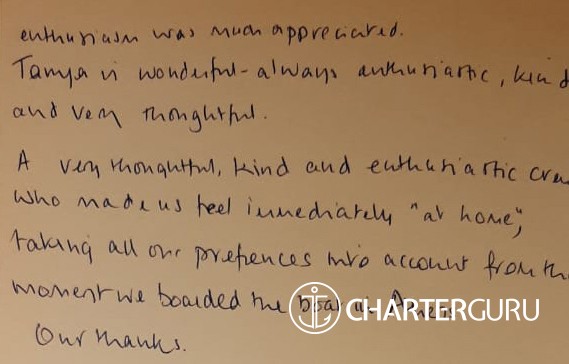 enthusiasm was much appreciated.
Tanya is wonderful - always enthusiastic, kind
and very thoughtful.
A very thoughtful, kind and enthusiastic crew
who made us feel immediately "at home",
taking all our prefences into account from the
moment we boarded the boat in Athens
Our thanks.
CHARTERGURU